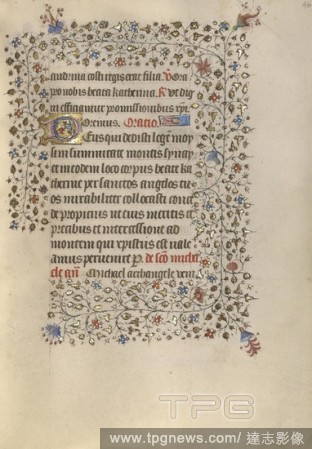 andrina costi regis erat filia. V Ora
pro nobis beata katherina. R Ut dig
ni efficiamur promissionibus xpi
Oremus. Oratio
Deus qui dedisti lege moy
si in summitate montis synay
et in eodem loco corpus beate ka
therine per sanctos angelos tu
os mirabiliter collocasti conce
de propicius ut eius meritis et
precibus et intercessione ad
montem qui xpistus est vale
amus pervenire P. de sco micha
ele an Michael archangele veni
TPG
www.tpgnews.com/ 達志影像